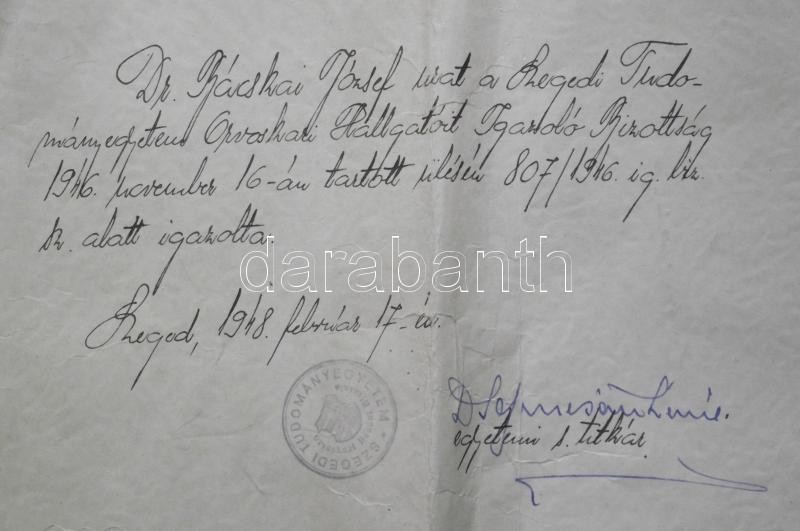 Dr. Bácskai József urat a Szegedi Tudo-
mányegyetem Orvoskari Hallgatóit Igazoló Bizottság
1946. november 16-án tartott ülésén 807/1946. ig. biz.
sz. alatt igazolta.
darabanth
Szeged, 1948. február 17-én.
SZEGEDI TUDOMÁNYEGYETEM
egyetemi s. titkár.